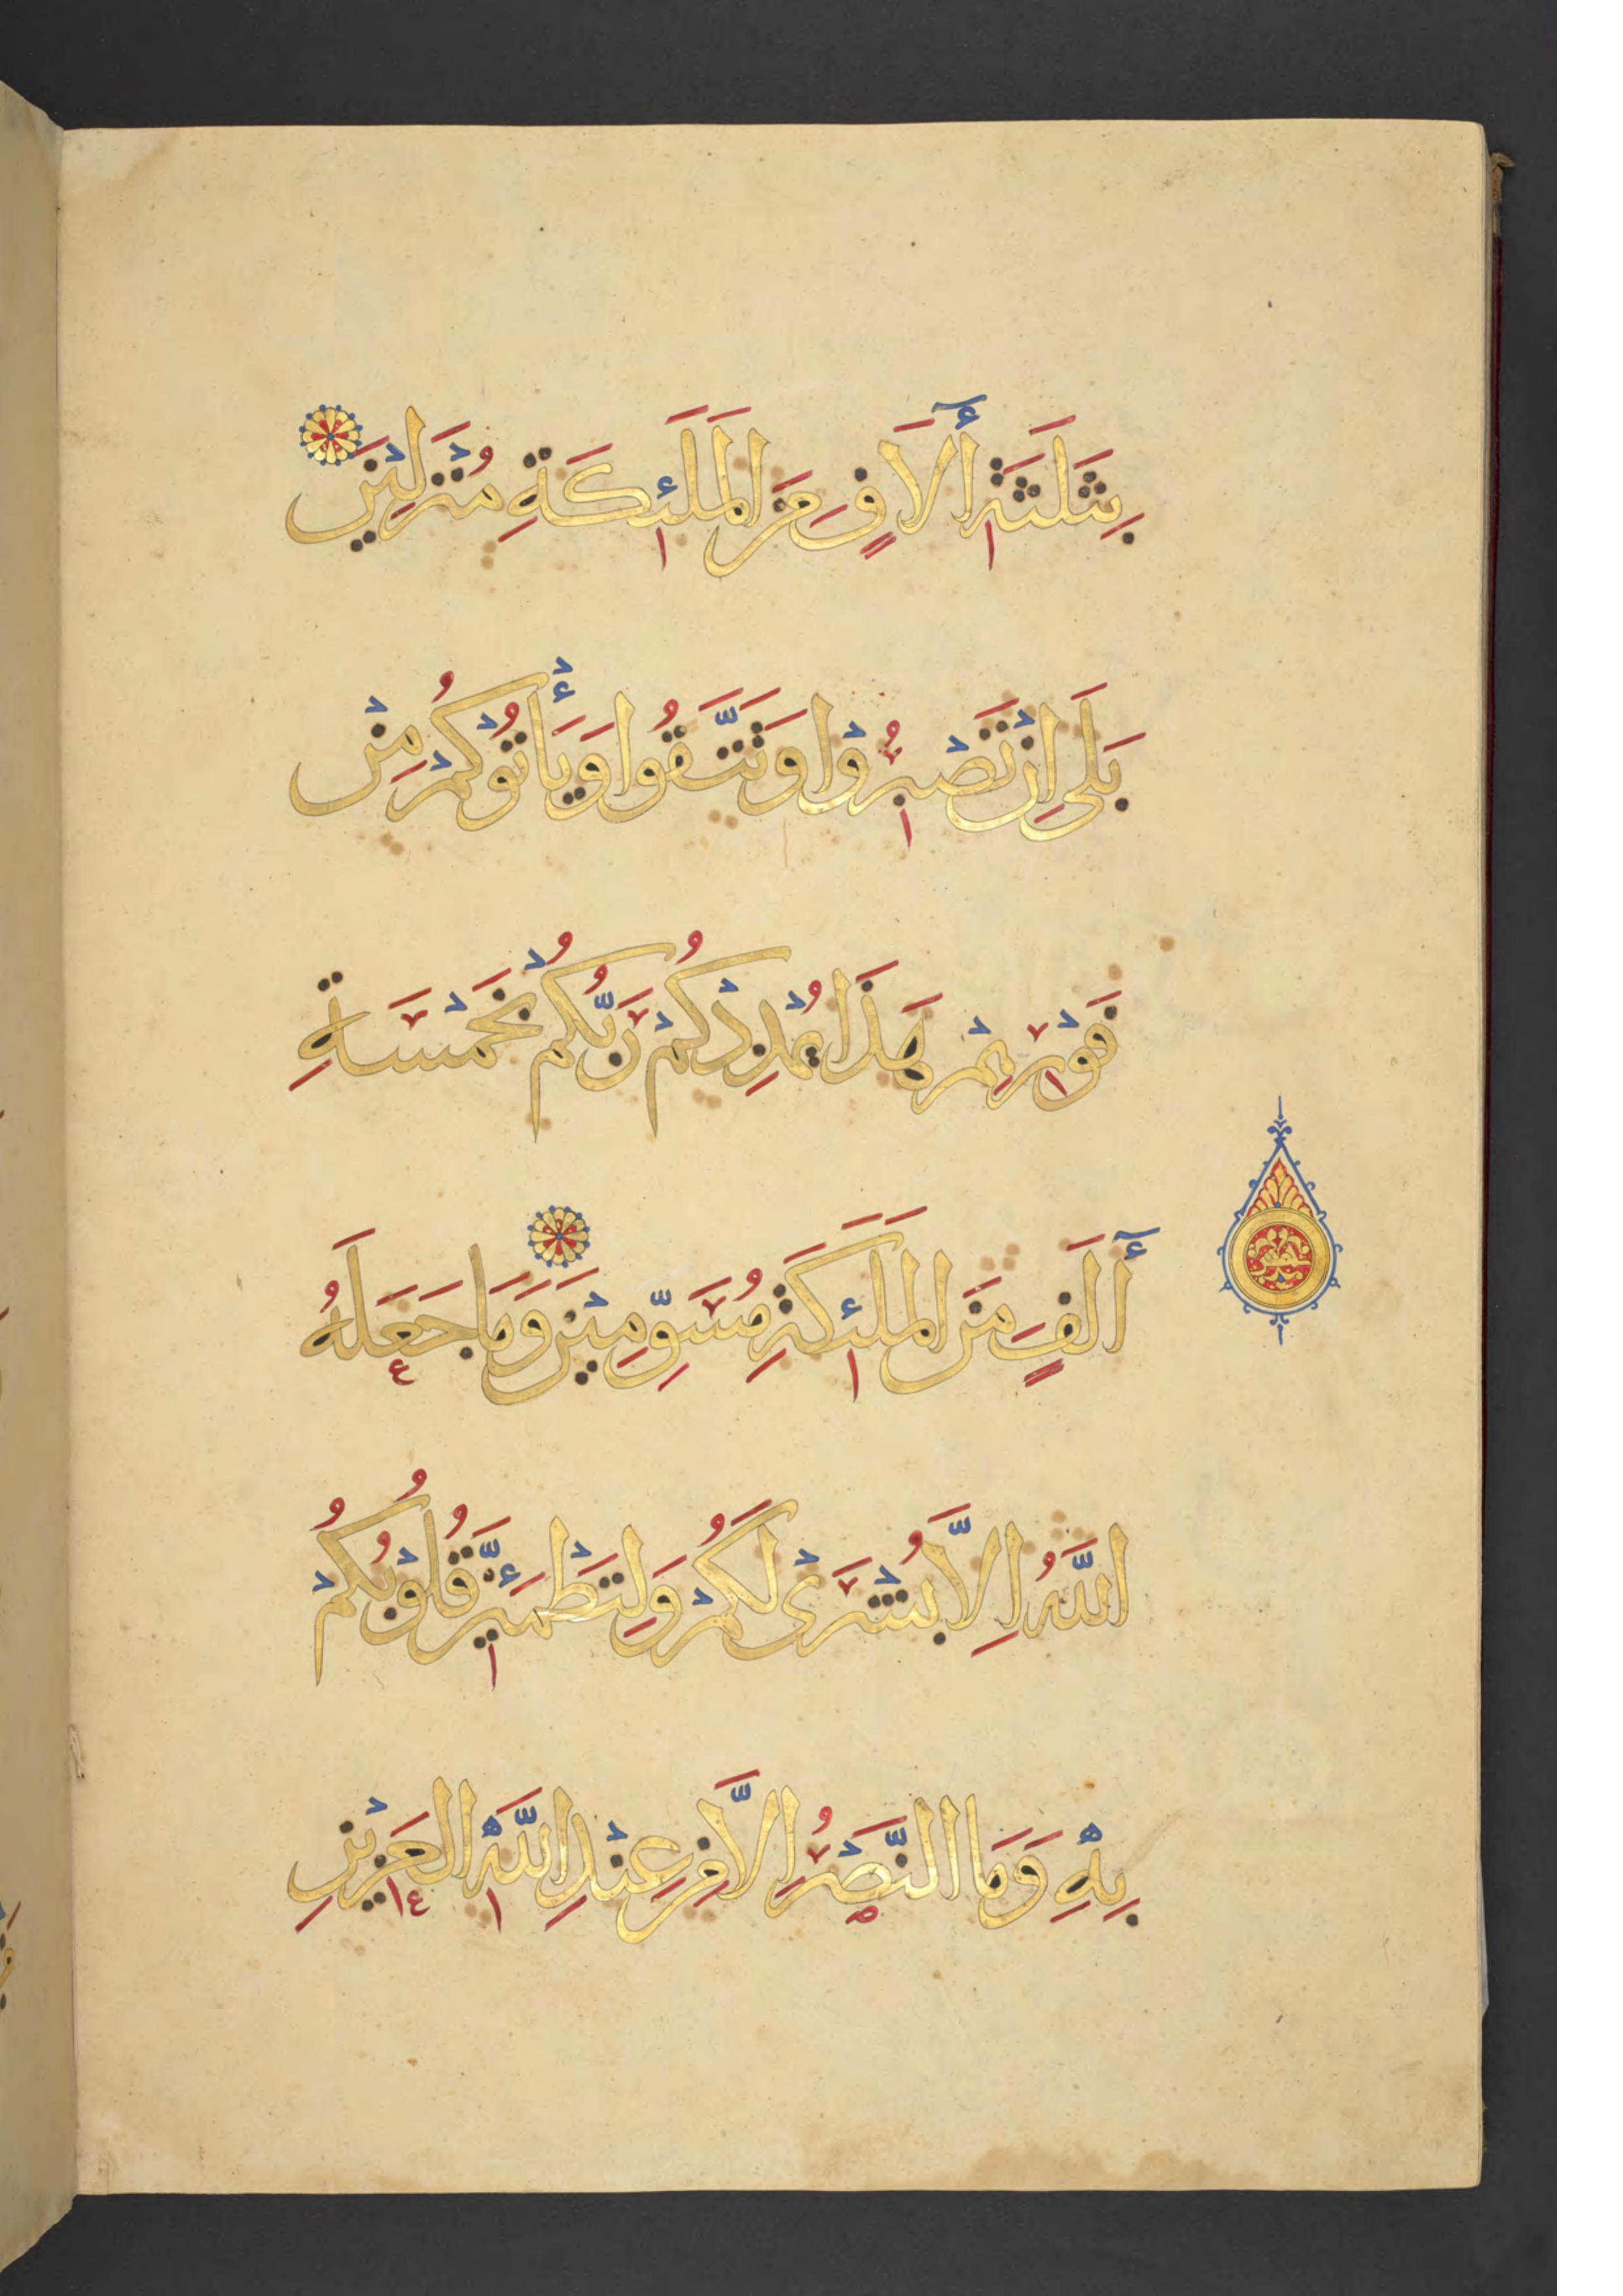 بِثَلَثَةِ أَلَافٍ مِنَ المَلَئِكَةِ مُنْزَلِيْنَ
بَلَى اِنْ تَصْبِرُوْا وَتَتَّقُوا وَيَأْتُوْكُمْ مِنْ
فَوْرِهِمْ هَذَا يُمْدِدْكُمْ رَبُّكُمْ بِخَمْسَةِ
أَلَفٍ مِنَ المَلَئِكَةِ مُسَوِّمِيْنَ وَمَا جَعَلَهُ
اللَّهُ اِلَّا بُشْرَىْ لَكُمْ وَلِتَطْمَئِنَّ قُلُوْبُكُمْ
بِهِ وَمَا النَّصْرُ اِلَّا مِنْ عِنْدِ اللَّهِ العَزِيْزِ